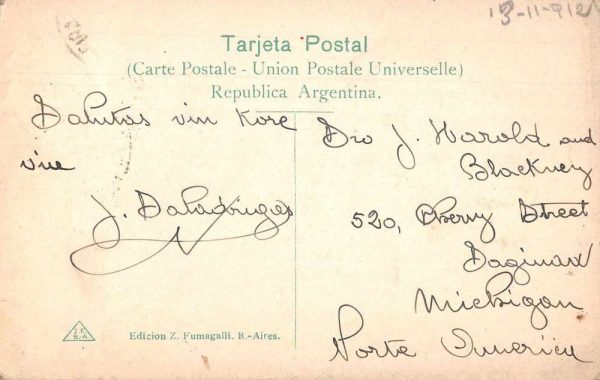 13-11-912
Tarjeta Postal
(Carte Postale - Union Postale Universelle)
Republica Argentina.
Salutas vin kore
J. Harold and
Blackney
520, Cherry Street
Saginaw
Michigan
Norte America
Z. F.
B.-A.
Edicion Z. Fumagalli. B.-Aires.